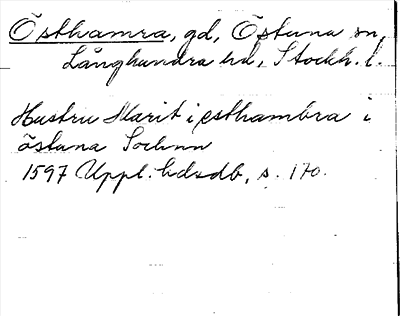 Östhamra, gd, Östuna sn,
Långhundra hd, Stockh. l.
Hustru Marit i esthambra i
östuna Sochnn
1597 Uppl. hdsdb, s. 170.